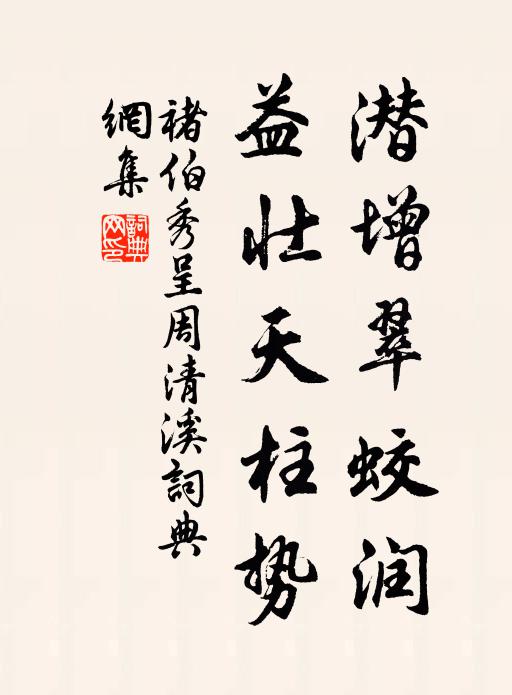 潜增翠蛟润
益壮天柱势
褚伯秀呈周清溪詞典
網集
詞典
网印